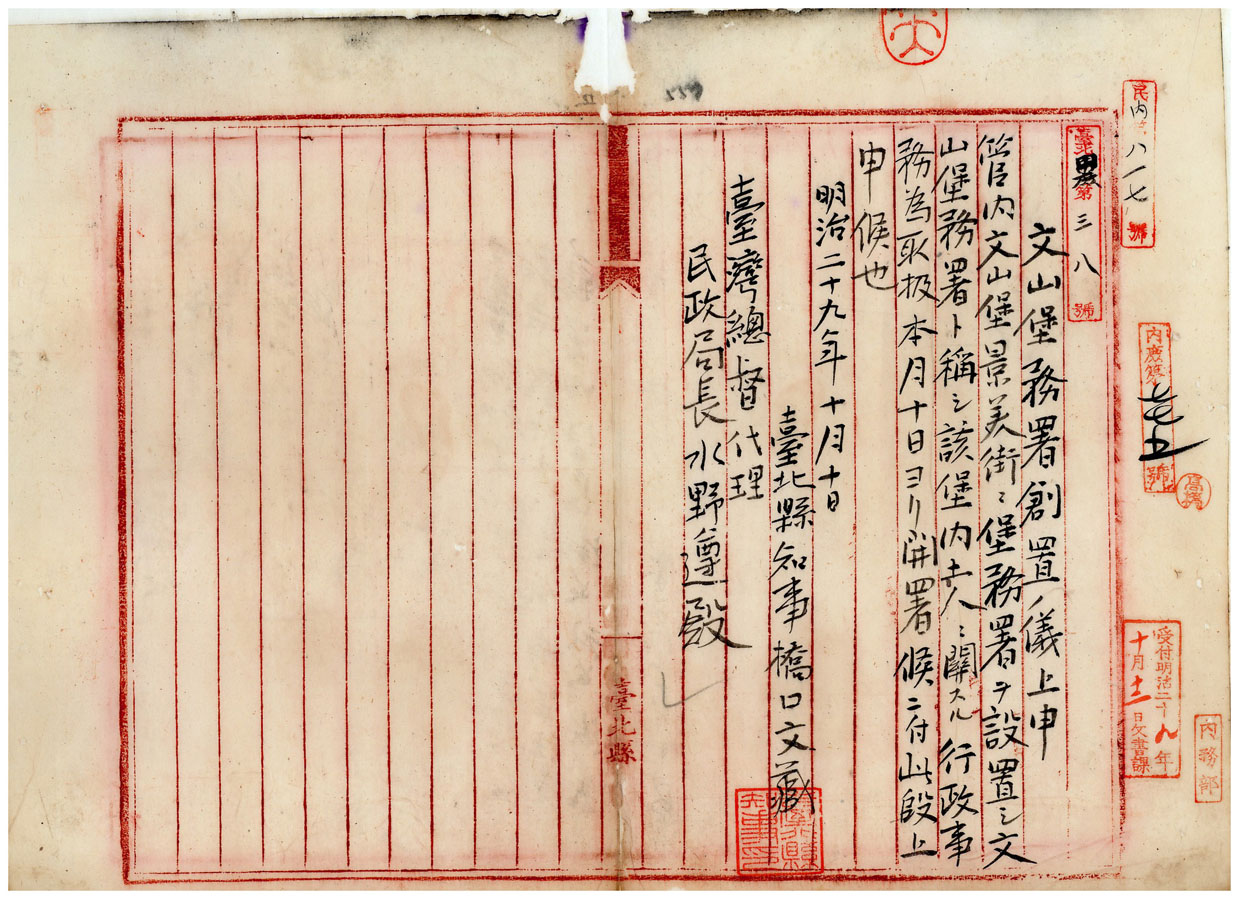 民內 八一七 號
內庶第 號
受付明治二十九年
十月十二日文書課
內務部
臺北縣庶第三八號
文山堡務署創置ノ儀上申
管內文山堡景美街ニ堡務署ヲ設置シ文
山堡務署ト稱シ該堡內土人ニ關スル行政事
務為取扱本月十日ヨリ開署候ニ付此段上
申候也
明治二十九年十月十日
臺北縣知事橋口文藏
臺灣總督代理
民政局長水野遵殿
臺北縣